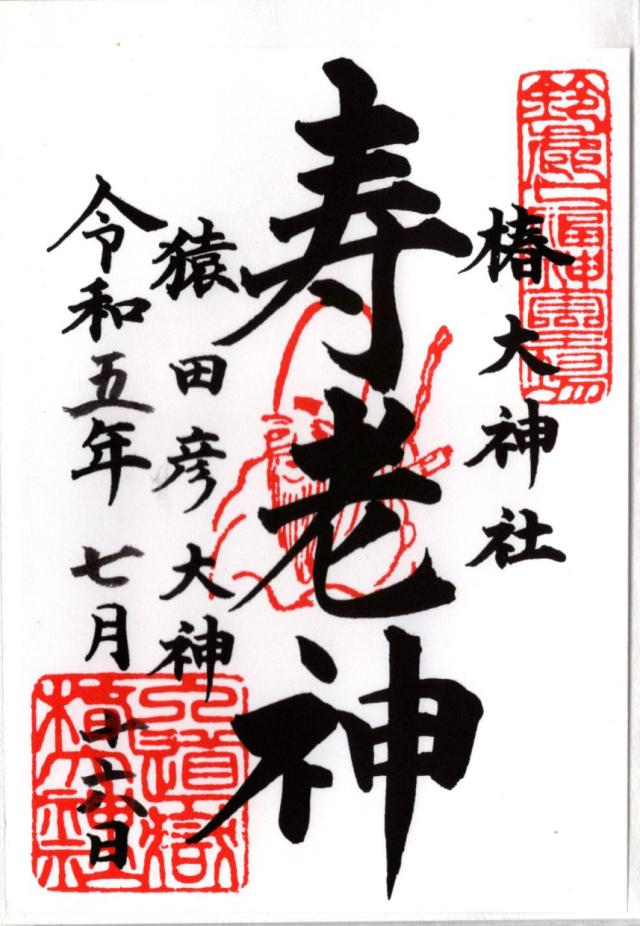 鈴鹿七福神霊場
椿大神社
寿老神
猿田彦大神
令和五年七月十六日
入道嶽
椿大神社